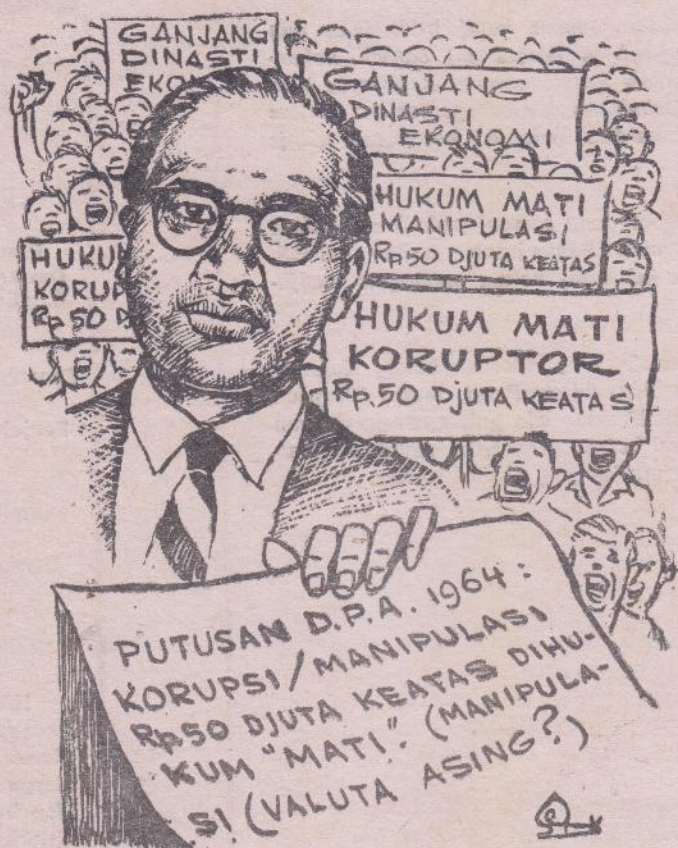 GANJANG
DINASTI
EKO
GANJANG
DINASTI
EKONOMI
HUKUM MATI
MANIPULASI
Rp 50 DJUTA KEATAS
HUKU
KORUP
Rp 50 D
HUKUM MATI
KORUPTOR
Rp. 50 DJUTA KEATAS
PUTUSAN D.P.A. 1964 :
KORUPSI/MANIPULASI
Rp 50 DJUTA KEATAS DIHU-
KUM "MATI". (MANIPULA-
SI (VALUTA ASING?)